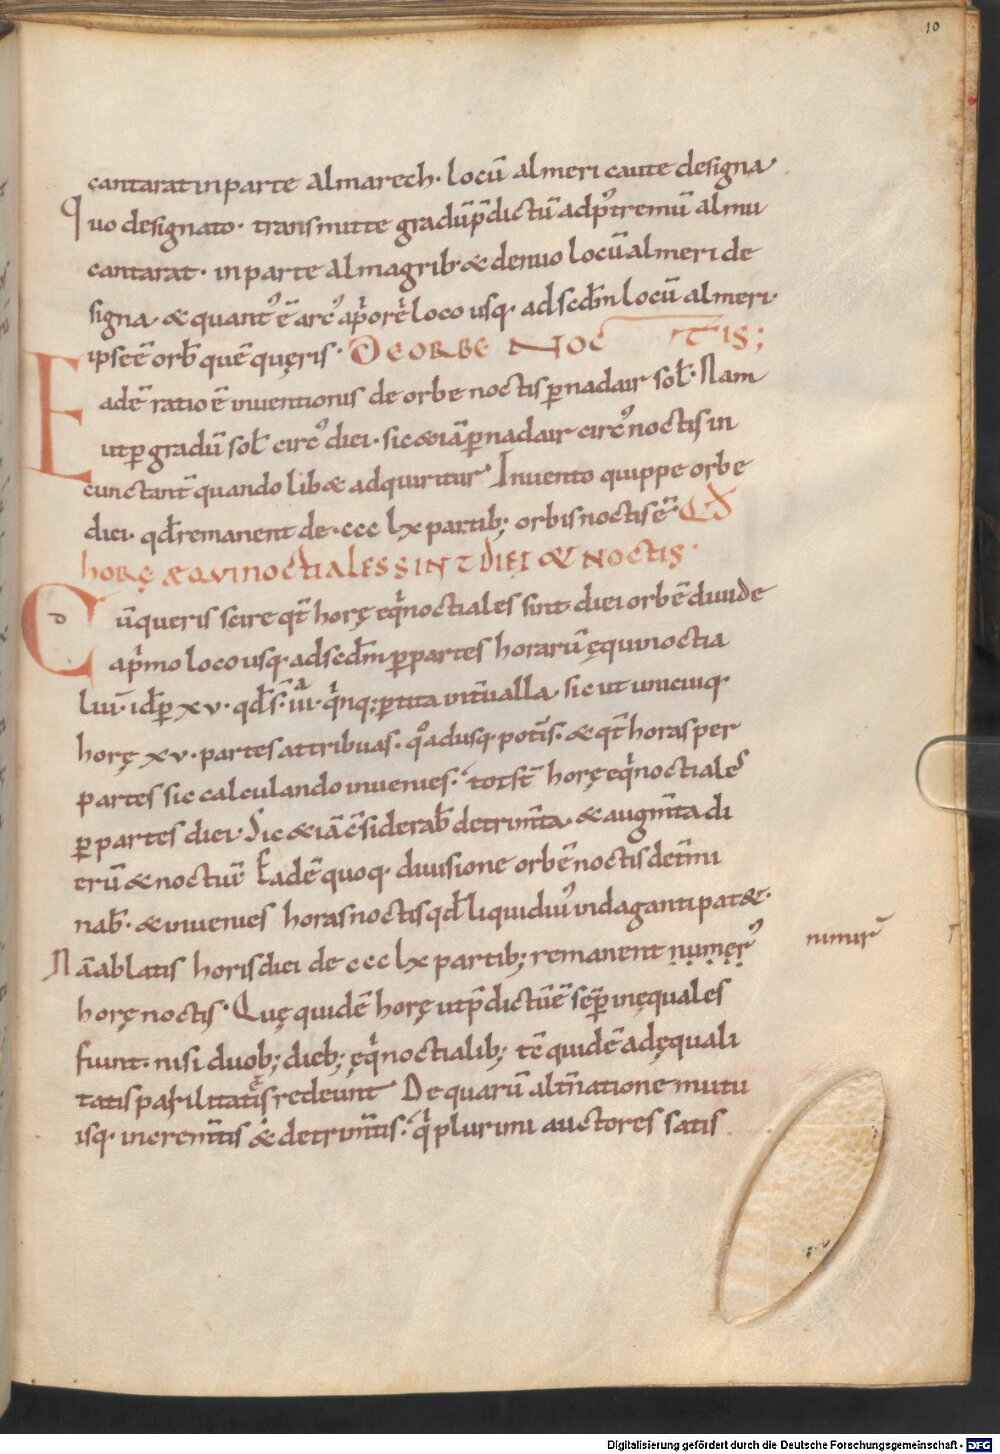 10
cantarat in parte almarech· locū almeri caute designa·
Quo designato· transmitte gradū p̄dictū ad postremū almu
cantarat· in parte almagrib· & denuo locū almeri de
signa· & quant᷒ ē arc᷒ a p͛ori loco usq· ad scdm̄ locū almeri·
ipse ē orb̄ quē quęris· DE ORBE NOCTIS;
Eadē ratio ē inventionis de orbe noctis p nadair sol̄· Nam
ut p gradū sol̄ circ᷒ diei· sic & iā p nadair circ᷒ noctis in
cunctant̄ quando lib& adquiritur· Invento quippe orbe
diei· qd̄ remanent de· ccc lx partib; orbis noctis ē· QD
HORĘ ÆQVINOCTIALES SINT DIEI & NOCTIS·
Cū queris scire qt̄ horę eq͛noctiales sint diei orbē divide
a p͛mo loco usq· ad scdm̄ p partes horarū ęquinoctia
liū· id̄ p xv· qd̄ s̄· iii a· q͛nq; ptita int̄ualla· sic ut unicuiq·
horę xv· partes attribuas· qo adusq· potis̄· & qt̄ horas per
partes sic calculando invenies· tot st̄ horę eq͛noctiales
p partes diei· Sic & iā c̄siderab̄ detrim̄ta· & augm̄ta di
erū & noctiū· Eadē quoq· divisione orbē noctis det̄mi
nab̄· & invenies horas noctis qd̄ liquidi᷒ indaganti pat&·
Nā ablatis horis diei de ccc lx partib; remanent numer᷒
nimir̄
horę noctis· Quę quidē horę ut p̄dictū ē sēp inęquales
fiunt· nisi duob; dieb; ęq͛noctialib; tc̄ quidē ad ęquali
tatis parilitatē redeunt· De quarū alt̄natione mutu
isq· increm̄tis & detrim̄tis· q͛ plurimi auctores satis
Digitalisierung gefördert durch die Deutsche Forschungsgemeinschaft - DFG